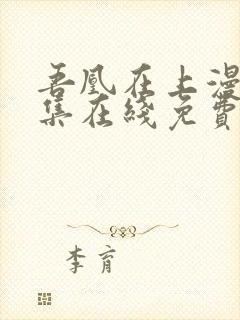 吾凰在上漫
集在綫免費
李育